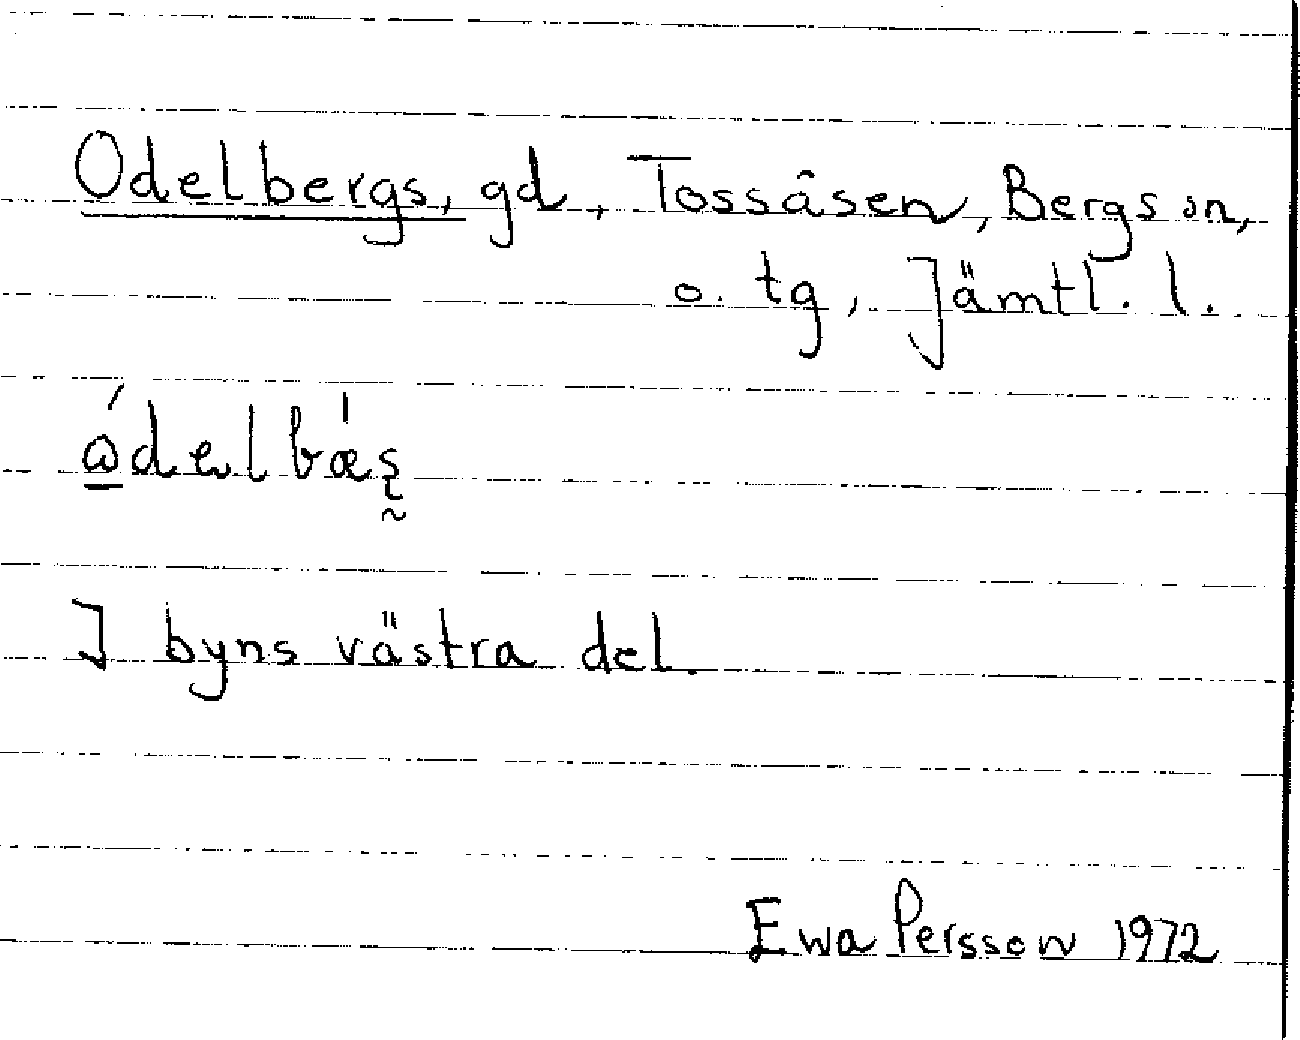 Odelbergs, gd, Tossåsen, Bergs sn,
o. tg, Jämtl. l.
I byns västra del.
Ewa Persson 1972